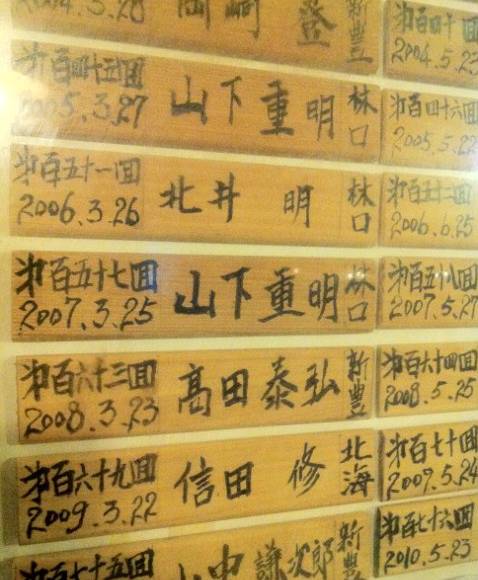 2004.3.28
岡崎 登
新豊
第百四十回
2004.5.23
第百四十五回
2005.3.27
山下重明
林口
第百四十六回
2005.5.22
第百五十一回
2006.3.26
北井 明
林口
第百五十二回
2006.6.25
第百五十七回
2007.3.25
山下重明
林口
第百五十八回
2007.5.27
第百六十三回
2008.3.23
高田泰弘
新豊
第百六十四回
2008.5.25
第百六十九回
2009.3.22
信田 修
北海
第百七十回
2009.5.24
第百七十五回
中謙次郎
新豊
第百七十六回
2010.5.23